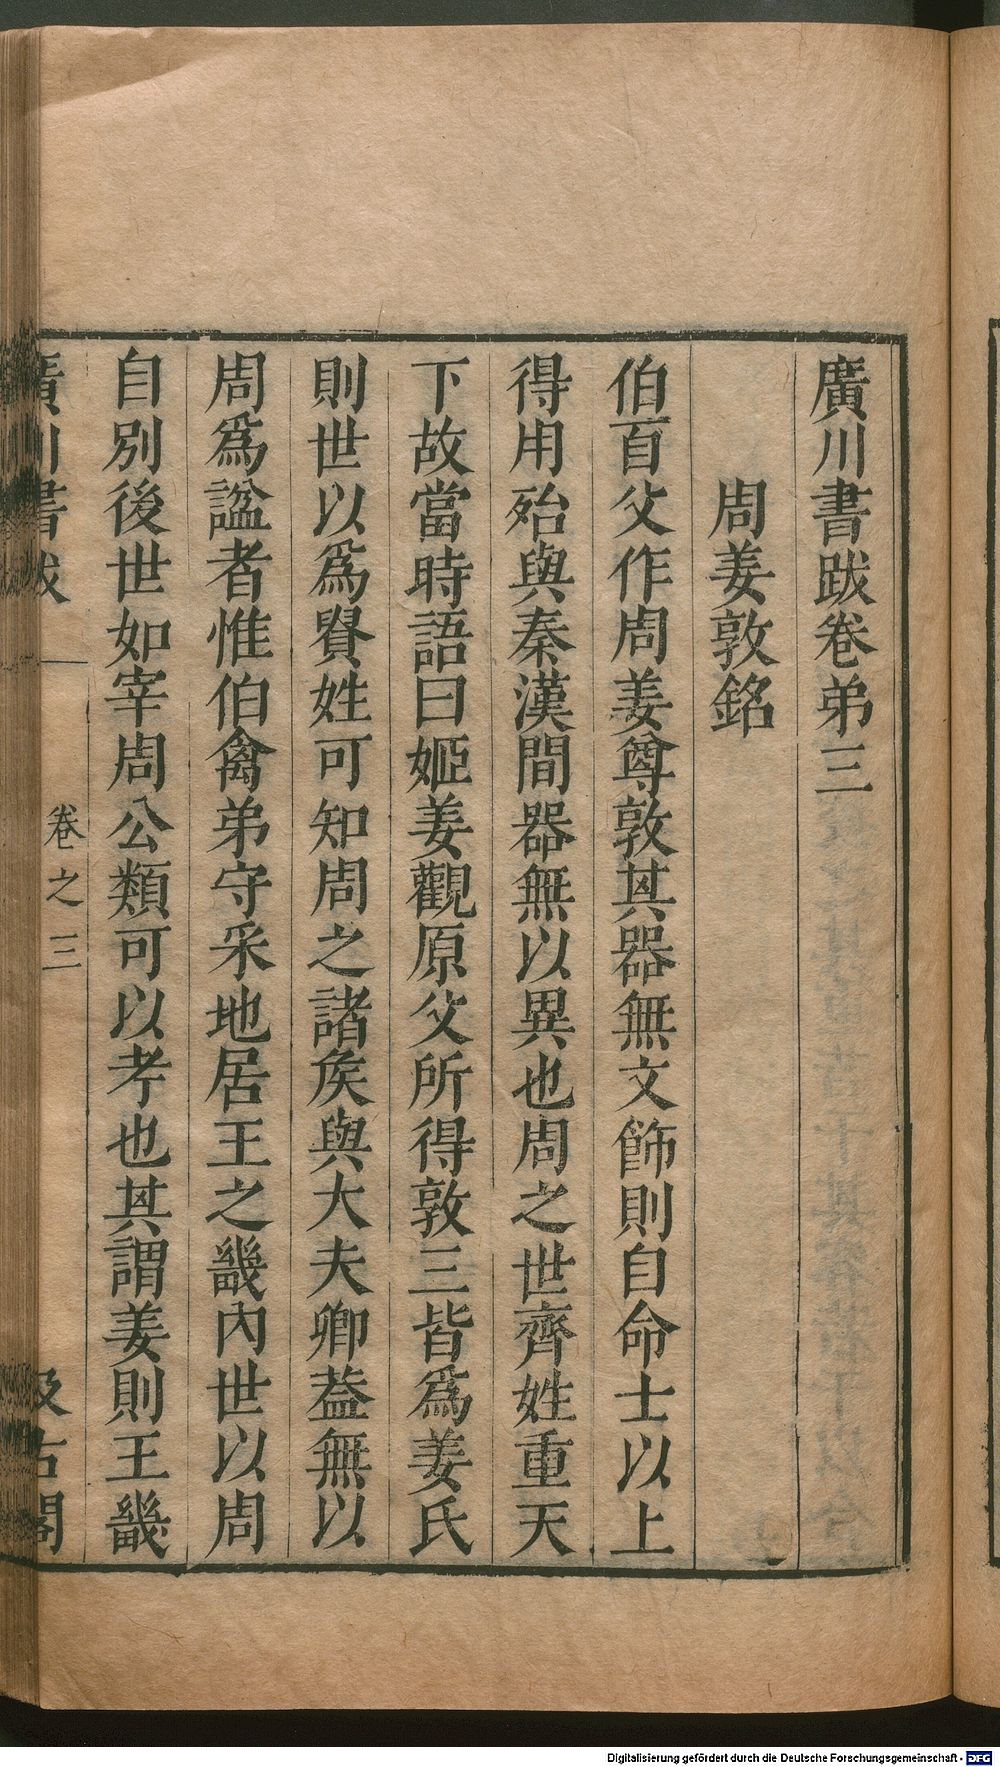 廣川書跋卷弟三
周姜敦銘
伯百父作周姜尊敦其器無文飾則自命士以上
得用殆與秦漢間器無以異也周之世齊姓重天
下故當時語曰姬姜觀原父所得敦三皆爲姜氏
則世以爲貴姓可知周之諸矦與大夫卿葢無以
周爲諡者惟伯禽弟守采地居王之畿內世以周
自別後世如宰周公類可以考也其謂姜則王畿
廣川書跋
卷之三
汲古閣
Digitalisierung gefördert durch die Deutsche Forschungsgemeinschaft - DFG